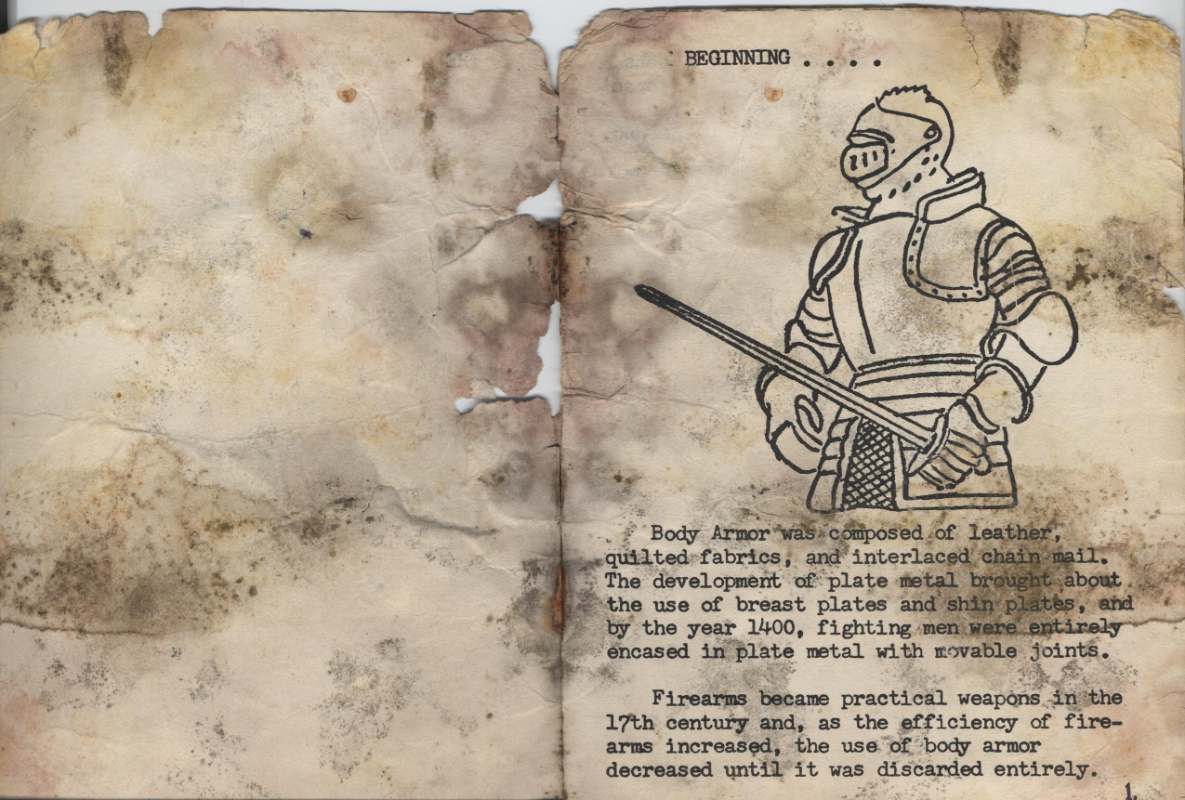 BEGINNING . . . .
Body Armor was composed of leather,
quilted fabrics, and interlaced chain mail.
The development of plate metal brought about
the use of breast plates and shin plates, and
by the year 1400, fighting men were entirely
encased in plate metal with movable joints.
Firearms became practical weapons in the
17th century and, as the efficiency of fire-
arms increased, the use of body armor
decreased until it was discarded entirely.
1.